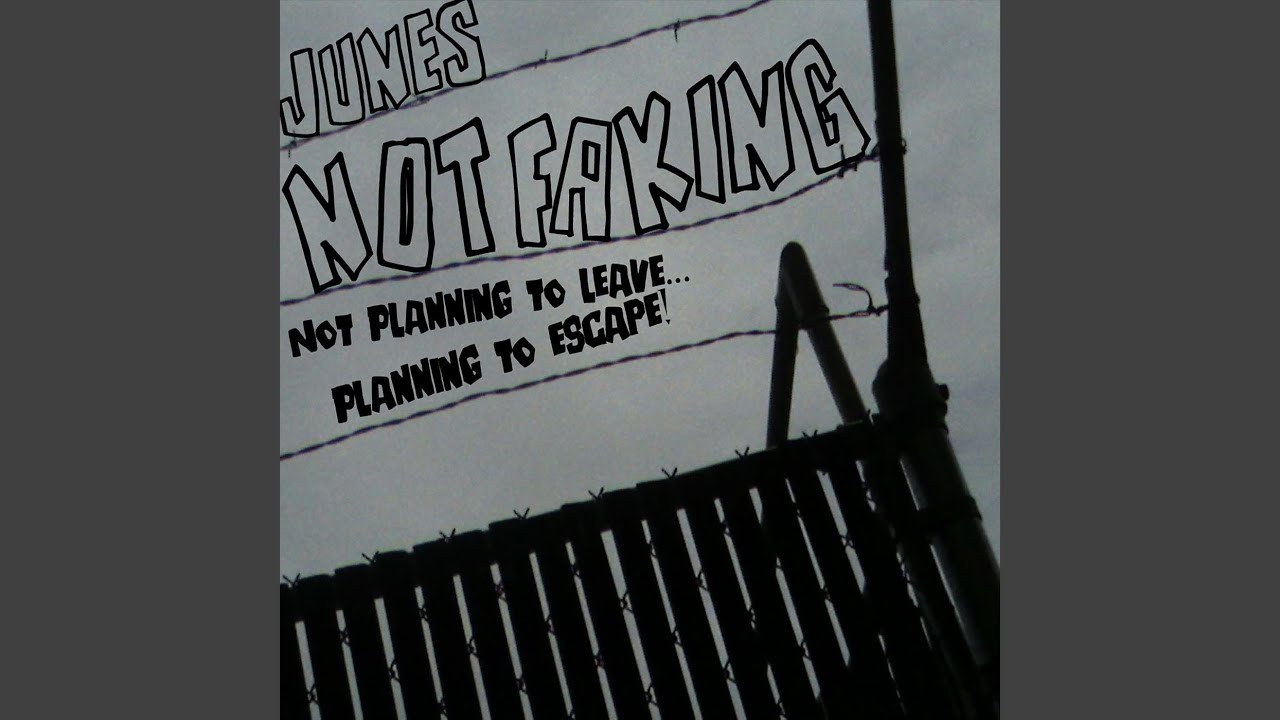 JUNES
NOT FAKING
NOT PLANNING TO LEAVE...
PLANNING TO ESCAPE!